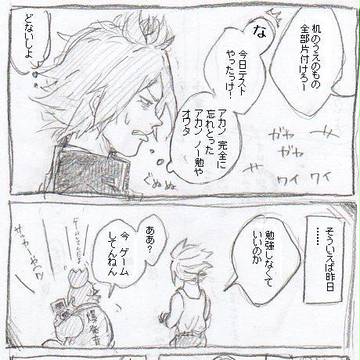 机のうえのもの
全部片付けろー
な
今日テスト
やったっけ！
どないしよ
アカン 完全に
忘れとった
アカン ノー勉や
オワタ
ぐぬぬ
ガヤ
ガヤ
ワイ
ワイ
そういえば昨日
……
勉強しなくて
いいのか
ああ？
今 ゲーム
してんねん